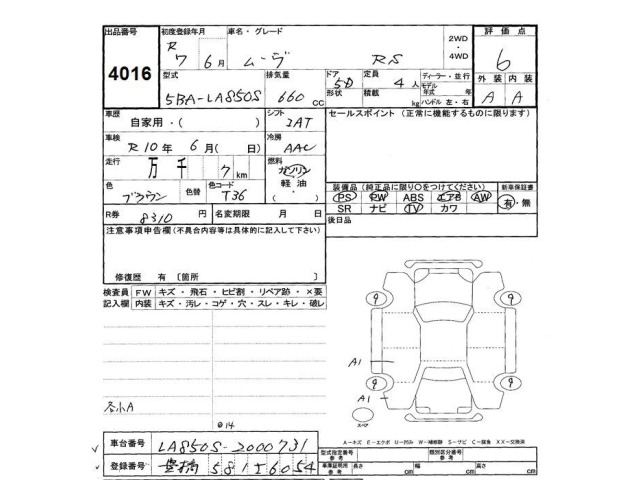 出品番号 初度登録年月 車名・グレード 2WD・4WD 評価点
4016 R 7 6月 ムーヴ RS 6
型式 排気量 ドア形状 定員 積載 ディーラー・並行 モデル年式 年 ハンドル 左・右 外装 内装
5BA-LA850S 660 CC 5D 4人 kg A A
車歴 シフト セールスポイント(正常に機能するものに限ります)
自家用・( ) IAT
車検 冷房
R10年 6月( 日) AAC
走行 燃料
万 千 7km ガソリン 軽油 ・( )
色 色替 色コード 装備品(純正品に限り○をつけてください) 新車保証書
ブラウン T36 PS PW ABS エアB AW 有・無
SR ナビ TV カワ
R券 8310 円 名変期限 月 日 後日品
注意事項申告欄(不具合内容等は具体的に記入して下さい)
修復歴 有 〔箇所 〕
検査員記入欄 FW キズ・飛石・ヒビ割・リペア跡・×要
内装 キズ・汚レ・コゲ・穴・スレ・キレ・破レ
9 9
A1
9 9
A1
小A
スペア
A-キズ E-エクボ U-凹み W-補修跡 S-サビ C-腐食 XX-交換済
車台番号 LA850S-2000731
登録番号 581 56054
型式指定番号 参考 類別区分番号 参考
車庫証明用 参考 長さ cm 幅 cm 高さ cm